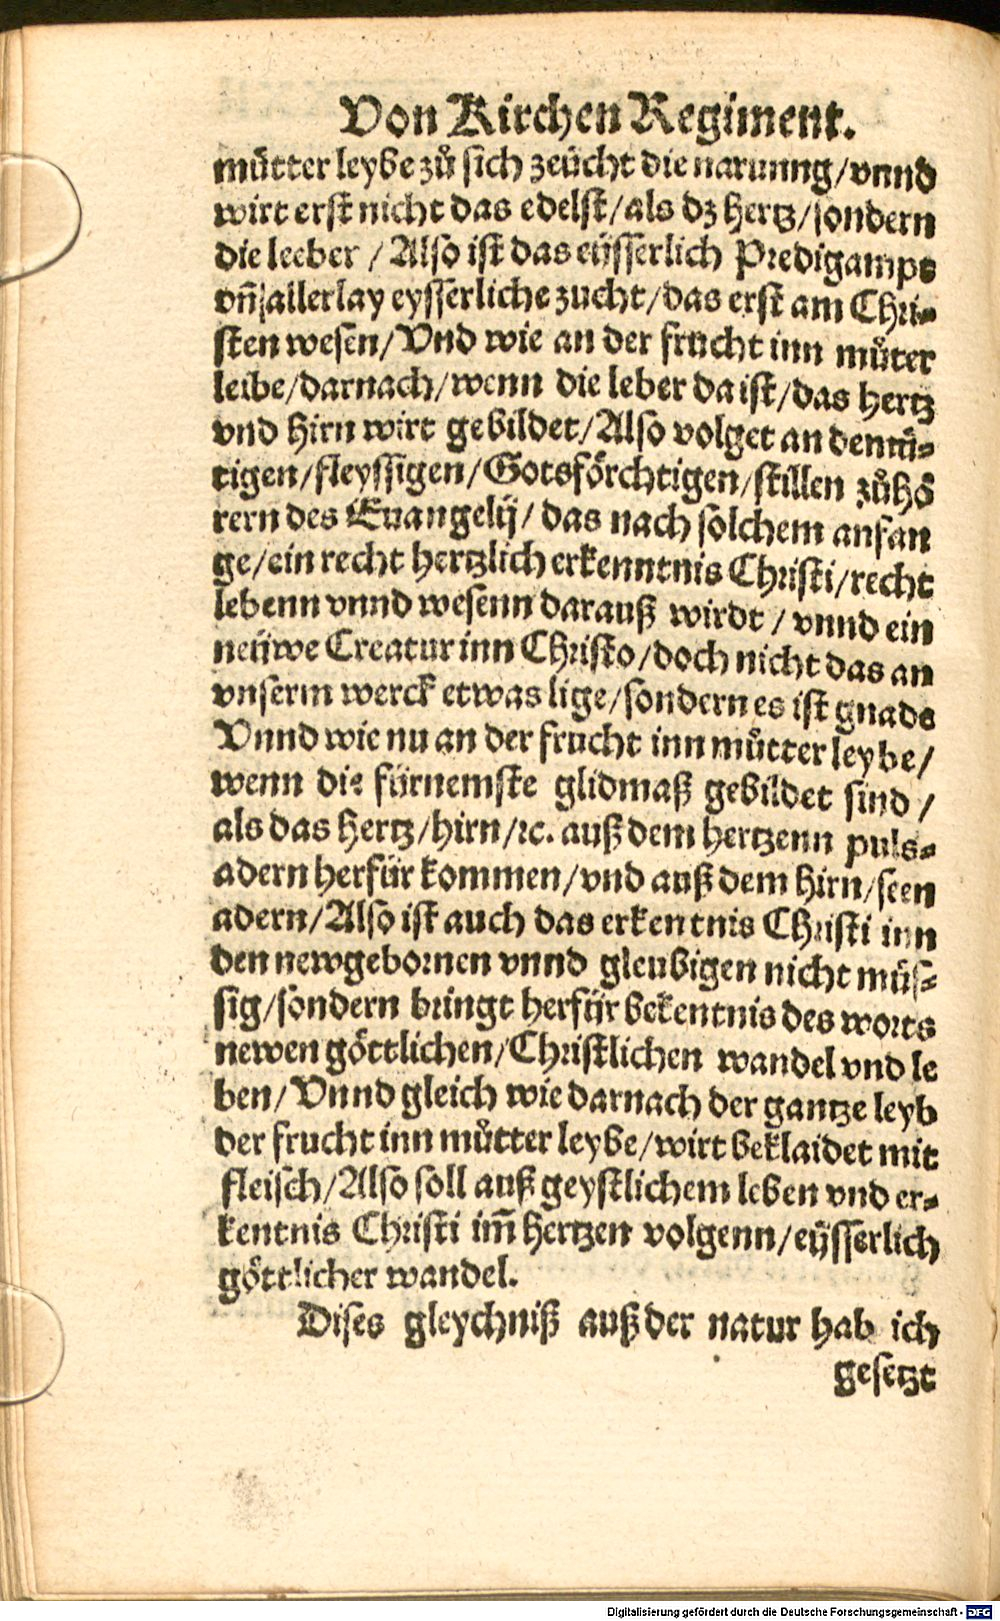 Von Kirchen Regiment.
muͤtter leybe zuͦ sich zeücht die narunng/vnnd
wirt erst nicht das edelst/als dz hertz/sondern
die leeber / Also ist das eüsserlich Predigampt
vñ allerlay eysserliche zucht/das erst am Chri-
sten wesen/Vnd wie an der frucht inn muͤter
leibe/darnach/wenn die leber da ist/das hertz
vnd hirn wirt gebildet/Also volget an demü-
tigen/fleyssigen/Gotsförchtigen/stillen zuͦhö
rern des Euangelij/ das nach solchem anfan
ge/ein recht hertzlich erkenntnis Christi/recht
lebenn vnnd wesenn darauß wirdt / vnnd ein
neüwe Creatur inn Christo/doch nicht das an
vnserm werck etwas lige/sondern es ist gnade
Vnnd wie nu an der frucht inn muͤtter leybe/
wenn die fürnemste glidmaß gebildet sind /
als das hertz/hirn/ꝛc. auß dem hertzenn puls-
adern herfür kommen/vnd auß dem hirn/seen
adern/Also ist auch das erkentnis Christi inn
den newgebornen vnnd gleubigen nicht müs-
sig/sondern bringt herfür bekentnis des worts
newen göttlichen/Christlichen wandel vnd le
ben/Vnnd gleich wie darnach der gantze leyb
der frucht inn muͤtter leybe/wirt beklaidet mit
fleisch/Also soll auß geystlichem leben vnd er-
kentnis Christi im̃ hertzen volgenn/eüsserlich
göttlicher wandel.
Dises gleychniß auß der natur hab ich
gesetzt
Digitalisierung gefördert durch die Deutsche Forschungsgemeinschaft - DFG